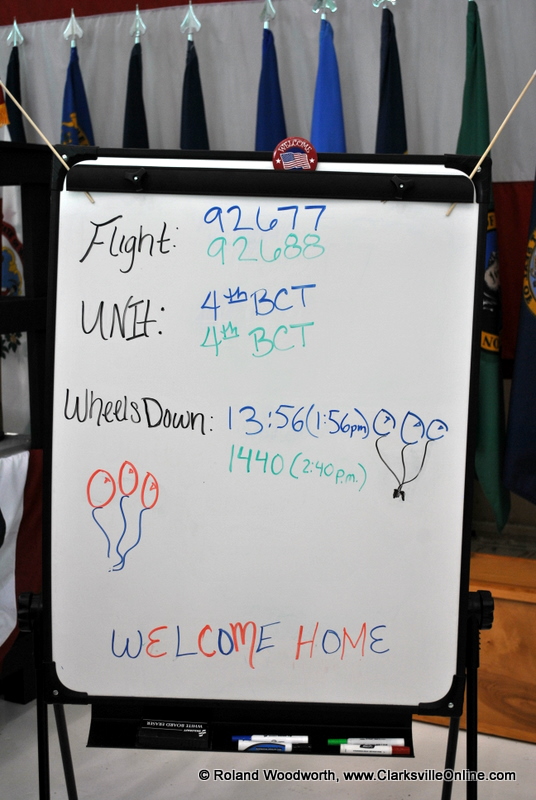 WELCOME
Flight: 92677
92688
UNIt: 4th BCT
4th BCT
WheelsDown: 13:56(1:56pm)
1440(2:40p.m.)
WELCOME HOME
WHITE BOARD ERASER
© Roland Woodworth, www.ClarksvilleOnline.com